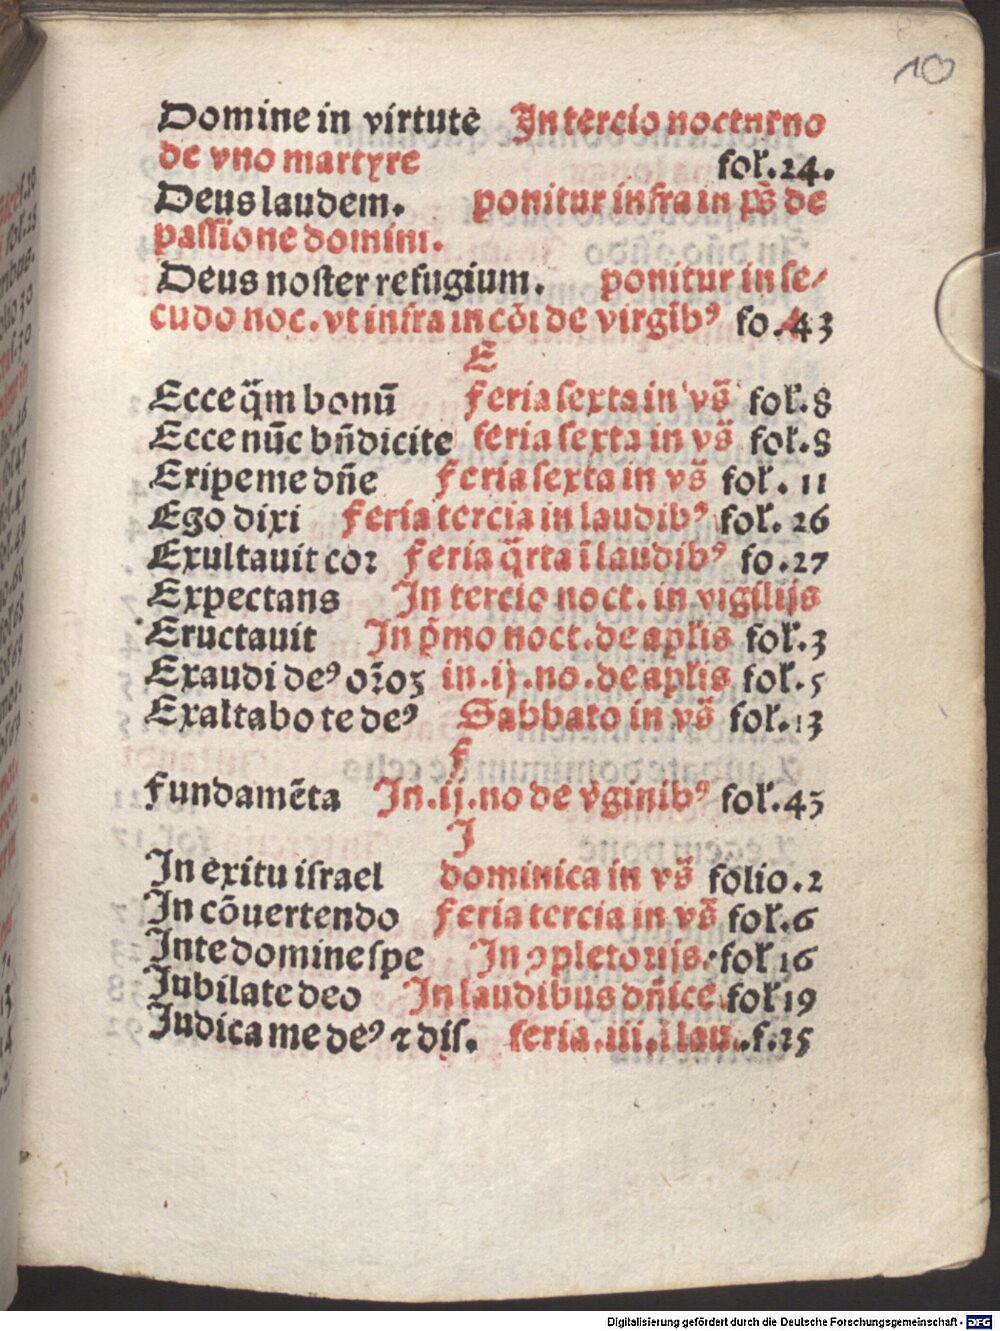 10
Domine in virtutē In tercio nocturno
de vno martyre fol̕.24.
Deus laudem. ponitur infra in ps̄ de
passione domini.
Deus noster refugium. ponitur in se/
cūdo noc. vt infra in cōi de virgibꝰ fo.43
E
Ecce q̄m bonū feria sexta in vs̄ fol̕.8
Ecce nūc bn̄dicite feria sexta in vs̄ fol̕.8
Eripe me dn̄e feria sexta in vs̄ fol̕. 11
Ego dixi feria tercia in laudibꝰ fol̕. 26
Exultauit cor feria q̄rta ī laudibꝰ fo.27
Expectans In tercio noct. in vigilijs
Eructauit In p̄mo noct. de apl̄is fol̕.3
Exaudi deꝰ orōꝫ in.ij.no.de apl̄is fol̕.5
Exaltabo te deꝰ Sabbato in vs̄ fol̕.13
F
Fundamēta In.ij.no de v̄ginibꝰ fol̕.45
I
In exitu israel dominica in vs̄ folio.2
In cōuertendo feria tercia in vs̄ fol̕.6
In te domine spe In ꝯpletorijs. fol̕ 16
Iubilate deo In laudibus dn̄ice fol̕ 19
Iudica me deꝰ ⁊ dis. feria.iii.ī lau..f.25
Digitalisierung gefördert durch die Deutsche Forschungsgemeinschaft - DFG